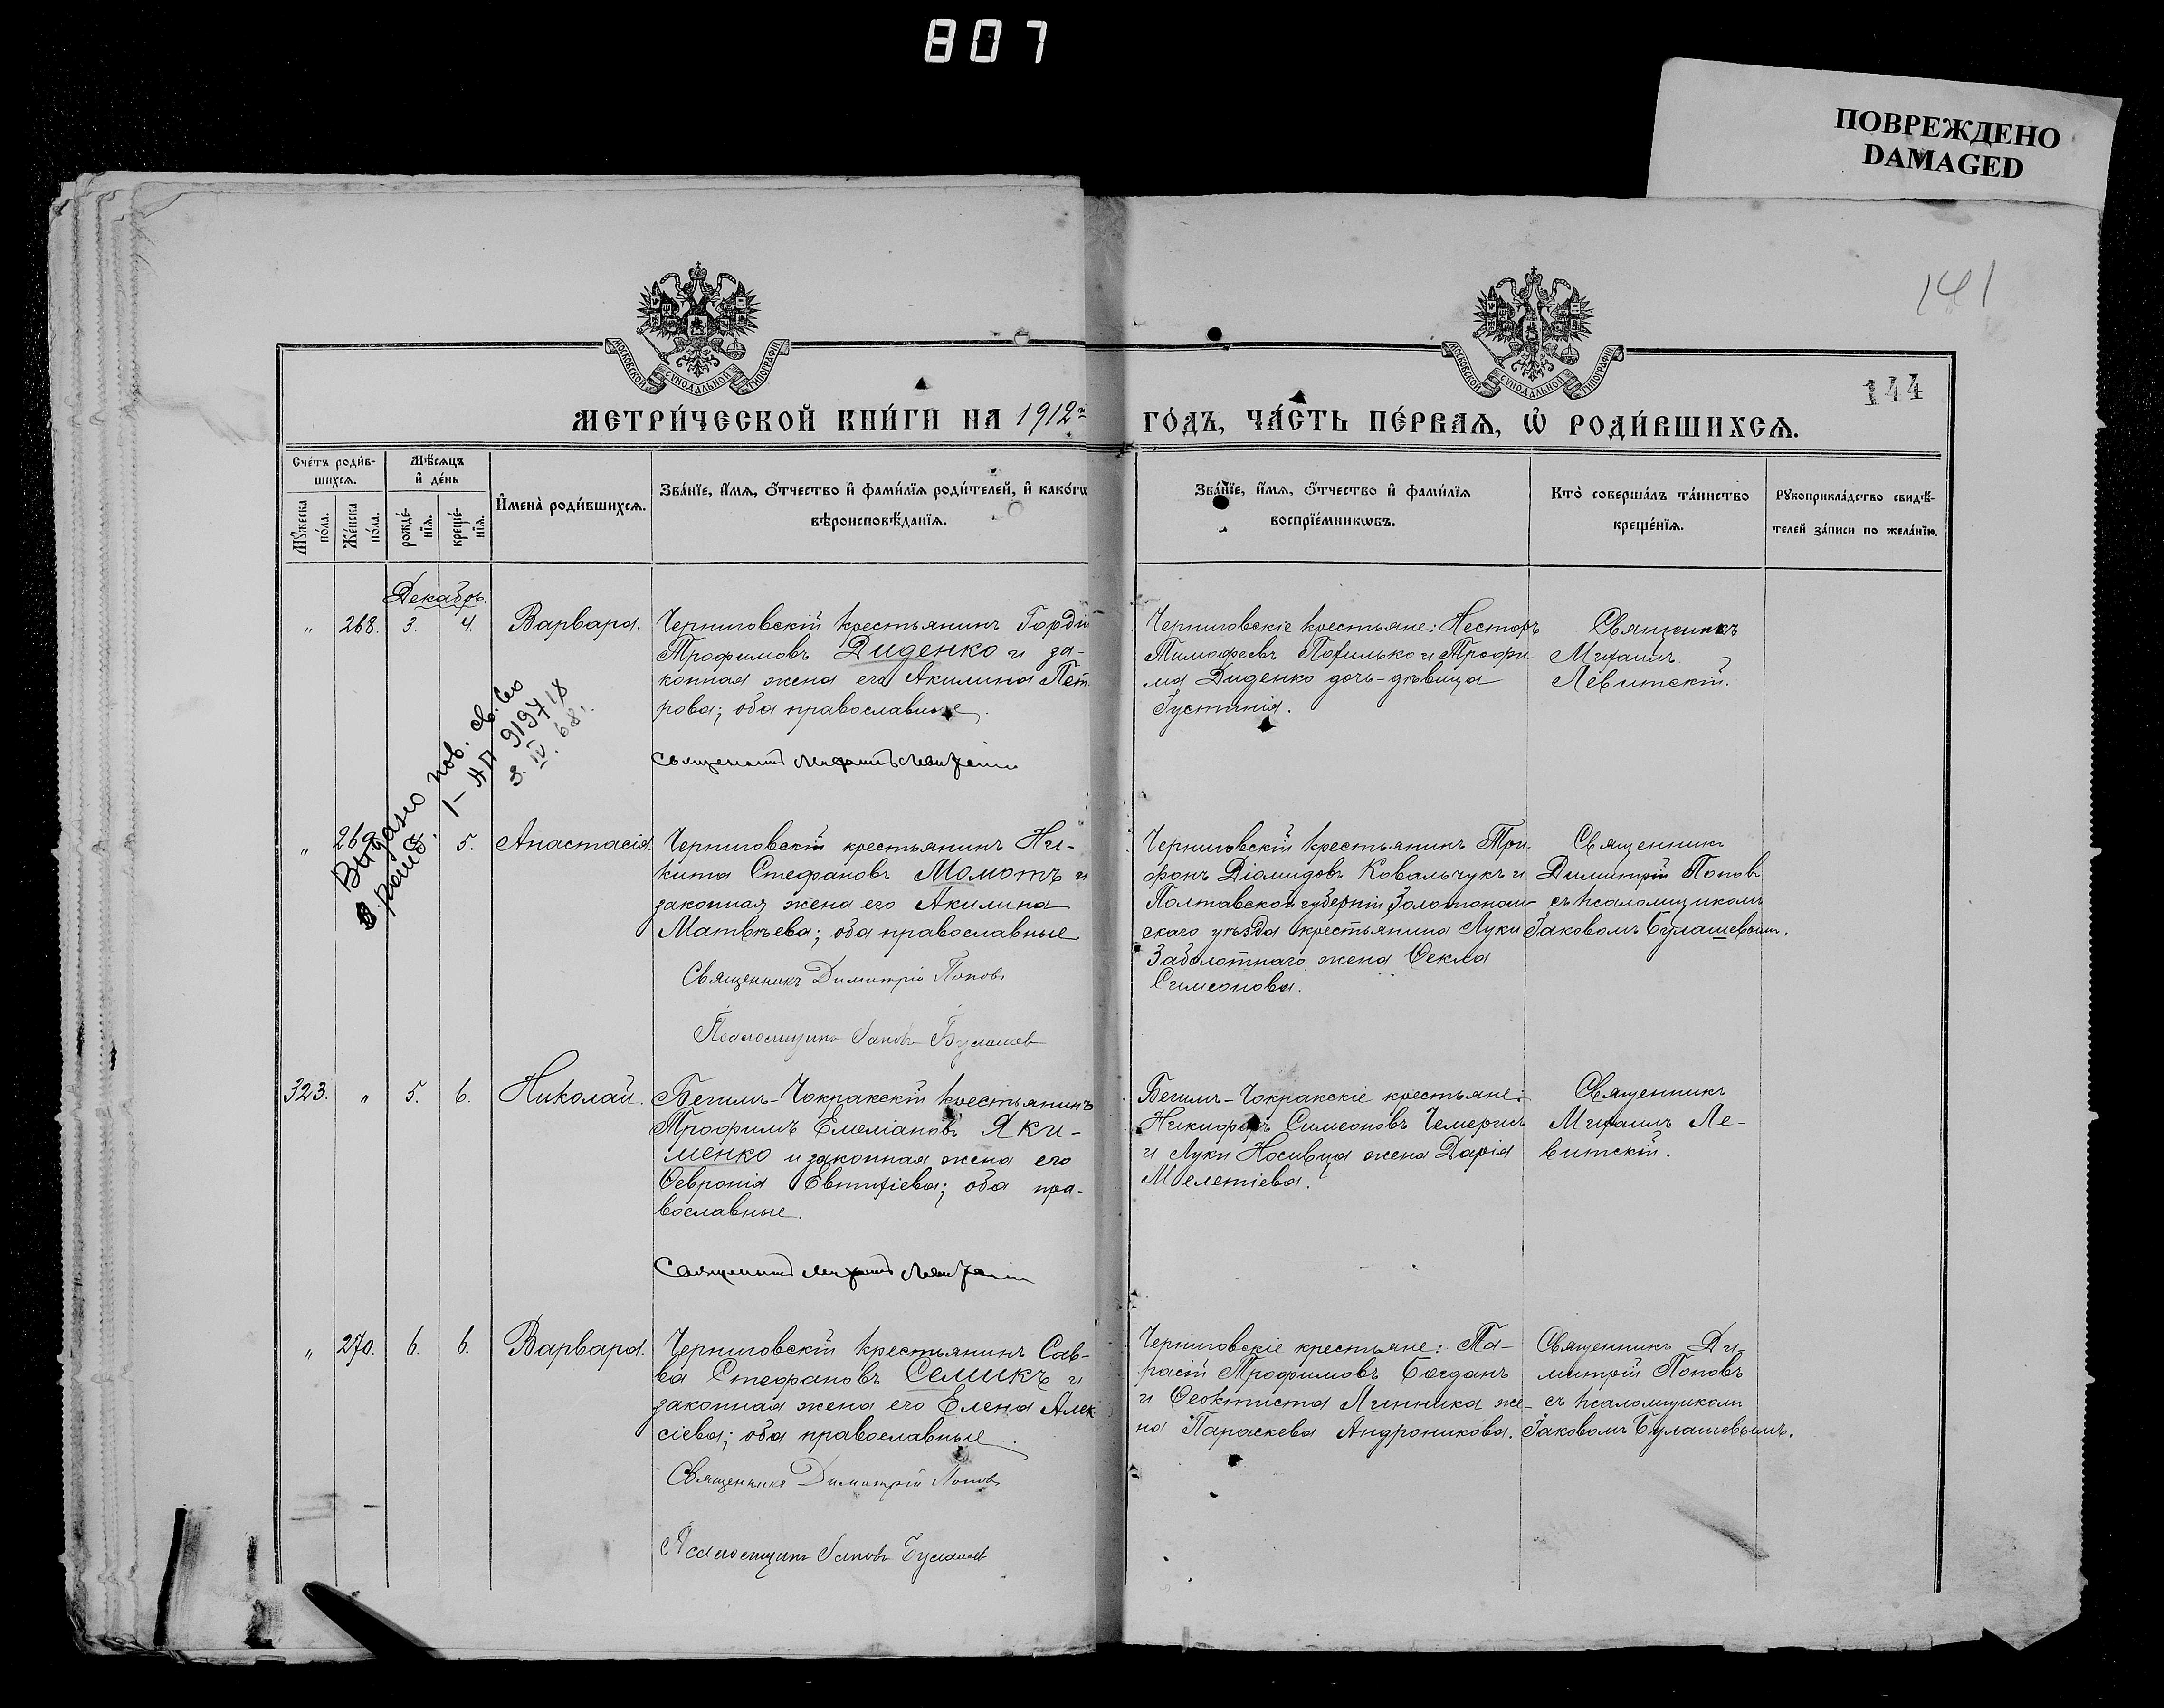 807
ПОВРЕЖДЕНО
DAMAGED
141
144
МОСКОВСКОЙ СѴНОДАЛЬНОЙ ТИПОГРАФІИ
МОСКОВСКОЙ СѴНОДАЛЬНОЙ ТИПОГРАФІИ
МЕТРИ́ЧЕСКОЙ КНИ́ГИ НА 1912й ГО́ДЪ, ЧА́СТЬ ПЕ́РВАЯ, Ѡ҆ РОДИ́ВШИХСЯ.
Сче́тъ роди́в-
шихся.
Мѣ́сяцъ
и҆ де́нь
Мꙋ́жеска
по́ла.
Же́нска
по́ла.
рожде́-
нїя.
креще́-
нїя.
И҆мена̀ роди́вшихся.
Зва́нїе, и҆́мя, ѻ҆́тчество и҆ фами́лїя роди́телей, и҆ како́гѡ
вѣроисповѣ́данїя.
Зва́нїе, и҆́мя, ѻ҆́тчество и҆ фами́лїя
воспрїе́мникѡвъ.
Кто̀ соверша́лъ та́инство
креще́нїя.
Рꙋкоприкла́дство свидѣ́-
телей за́писи по жела́нїю.
Декабрь.
" 268. 3. 4. Варвара.
Черниговскій крестьянинъ Гордій
Трофимовъ Диденко и за-
конная жена его Акилина Пет-
рова; оба православные.
Священникъ Михаилъ Левитскій
Черниговскіе крестьяне: Несторъ
Тимофеевъ Похилько и Трофи-
ма Диденко дочь-дѣвица
Густинія.
Священникъ
Михаилъ
Левитскій.
Выдано пов. св. во
о рожд. 1-АП 919718
3. IV. 68.
" 269. 5. Анастасія.
Черниговскій крестьянинъ Ни-
кита Стефановъ Момотъ и
законная жена его Акилина
Матвѣева; оба православные
Священникъ Димитрій Поповъ
Псаломщикъ Іаковъ Булашев
Черниговскій крестьянинъ Три-
фонъ Діомидовъ Ковальчукъ и
Полтавской губерніи Золотонош-
скаго уѣзда крестьянина Луки
Заболотнаго жена Ѳекла
Симеонова.
Священникъ
Димитрій Поповъ
съ псаломщикомъ
Іаковомъ Булашевымъ.
323. " 5. 6. Николай.
Бегимъ-Чокракскій крестьянинъ
Трофимъ Емеліановъ Яки-
менко и законная жена его
Ѳевронія Евтихіева; оба пра-
вославные.
Священникъ Михаилъ Левитскій
Бегимъ-Чокракскіе крестьяне:
Никифоръ Симеоновъ Чемерисъ
и Луки Носивца жена Дарія
Мелетіева.
Священникъ
Михаилъ Ле-
витскій.
" 270. 6. 6. Варвара.
Черниговскій крестьянинъ Сав-
ва Стефановъ Семикъ и
законная жена его Елена Алек-
сіева; оба православные.
Священникъ Димитрій Поповъ
Псаломщикъ Іаковъ Булашев
Черниговскіе крестьяне: Та-
расій Трофимовъ Богданъ
и Ѳеоктиста Линника же-
на Параскева Андроникова.
Священникъ Ди-
митрій Поповъ
съ псаломщикомъ
Іаковомъ Булашевымъ.